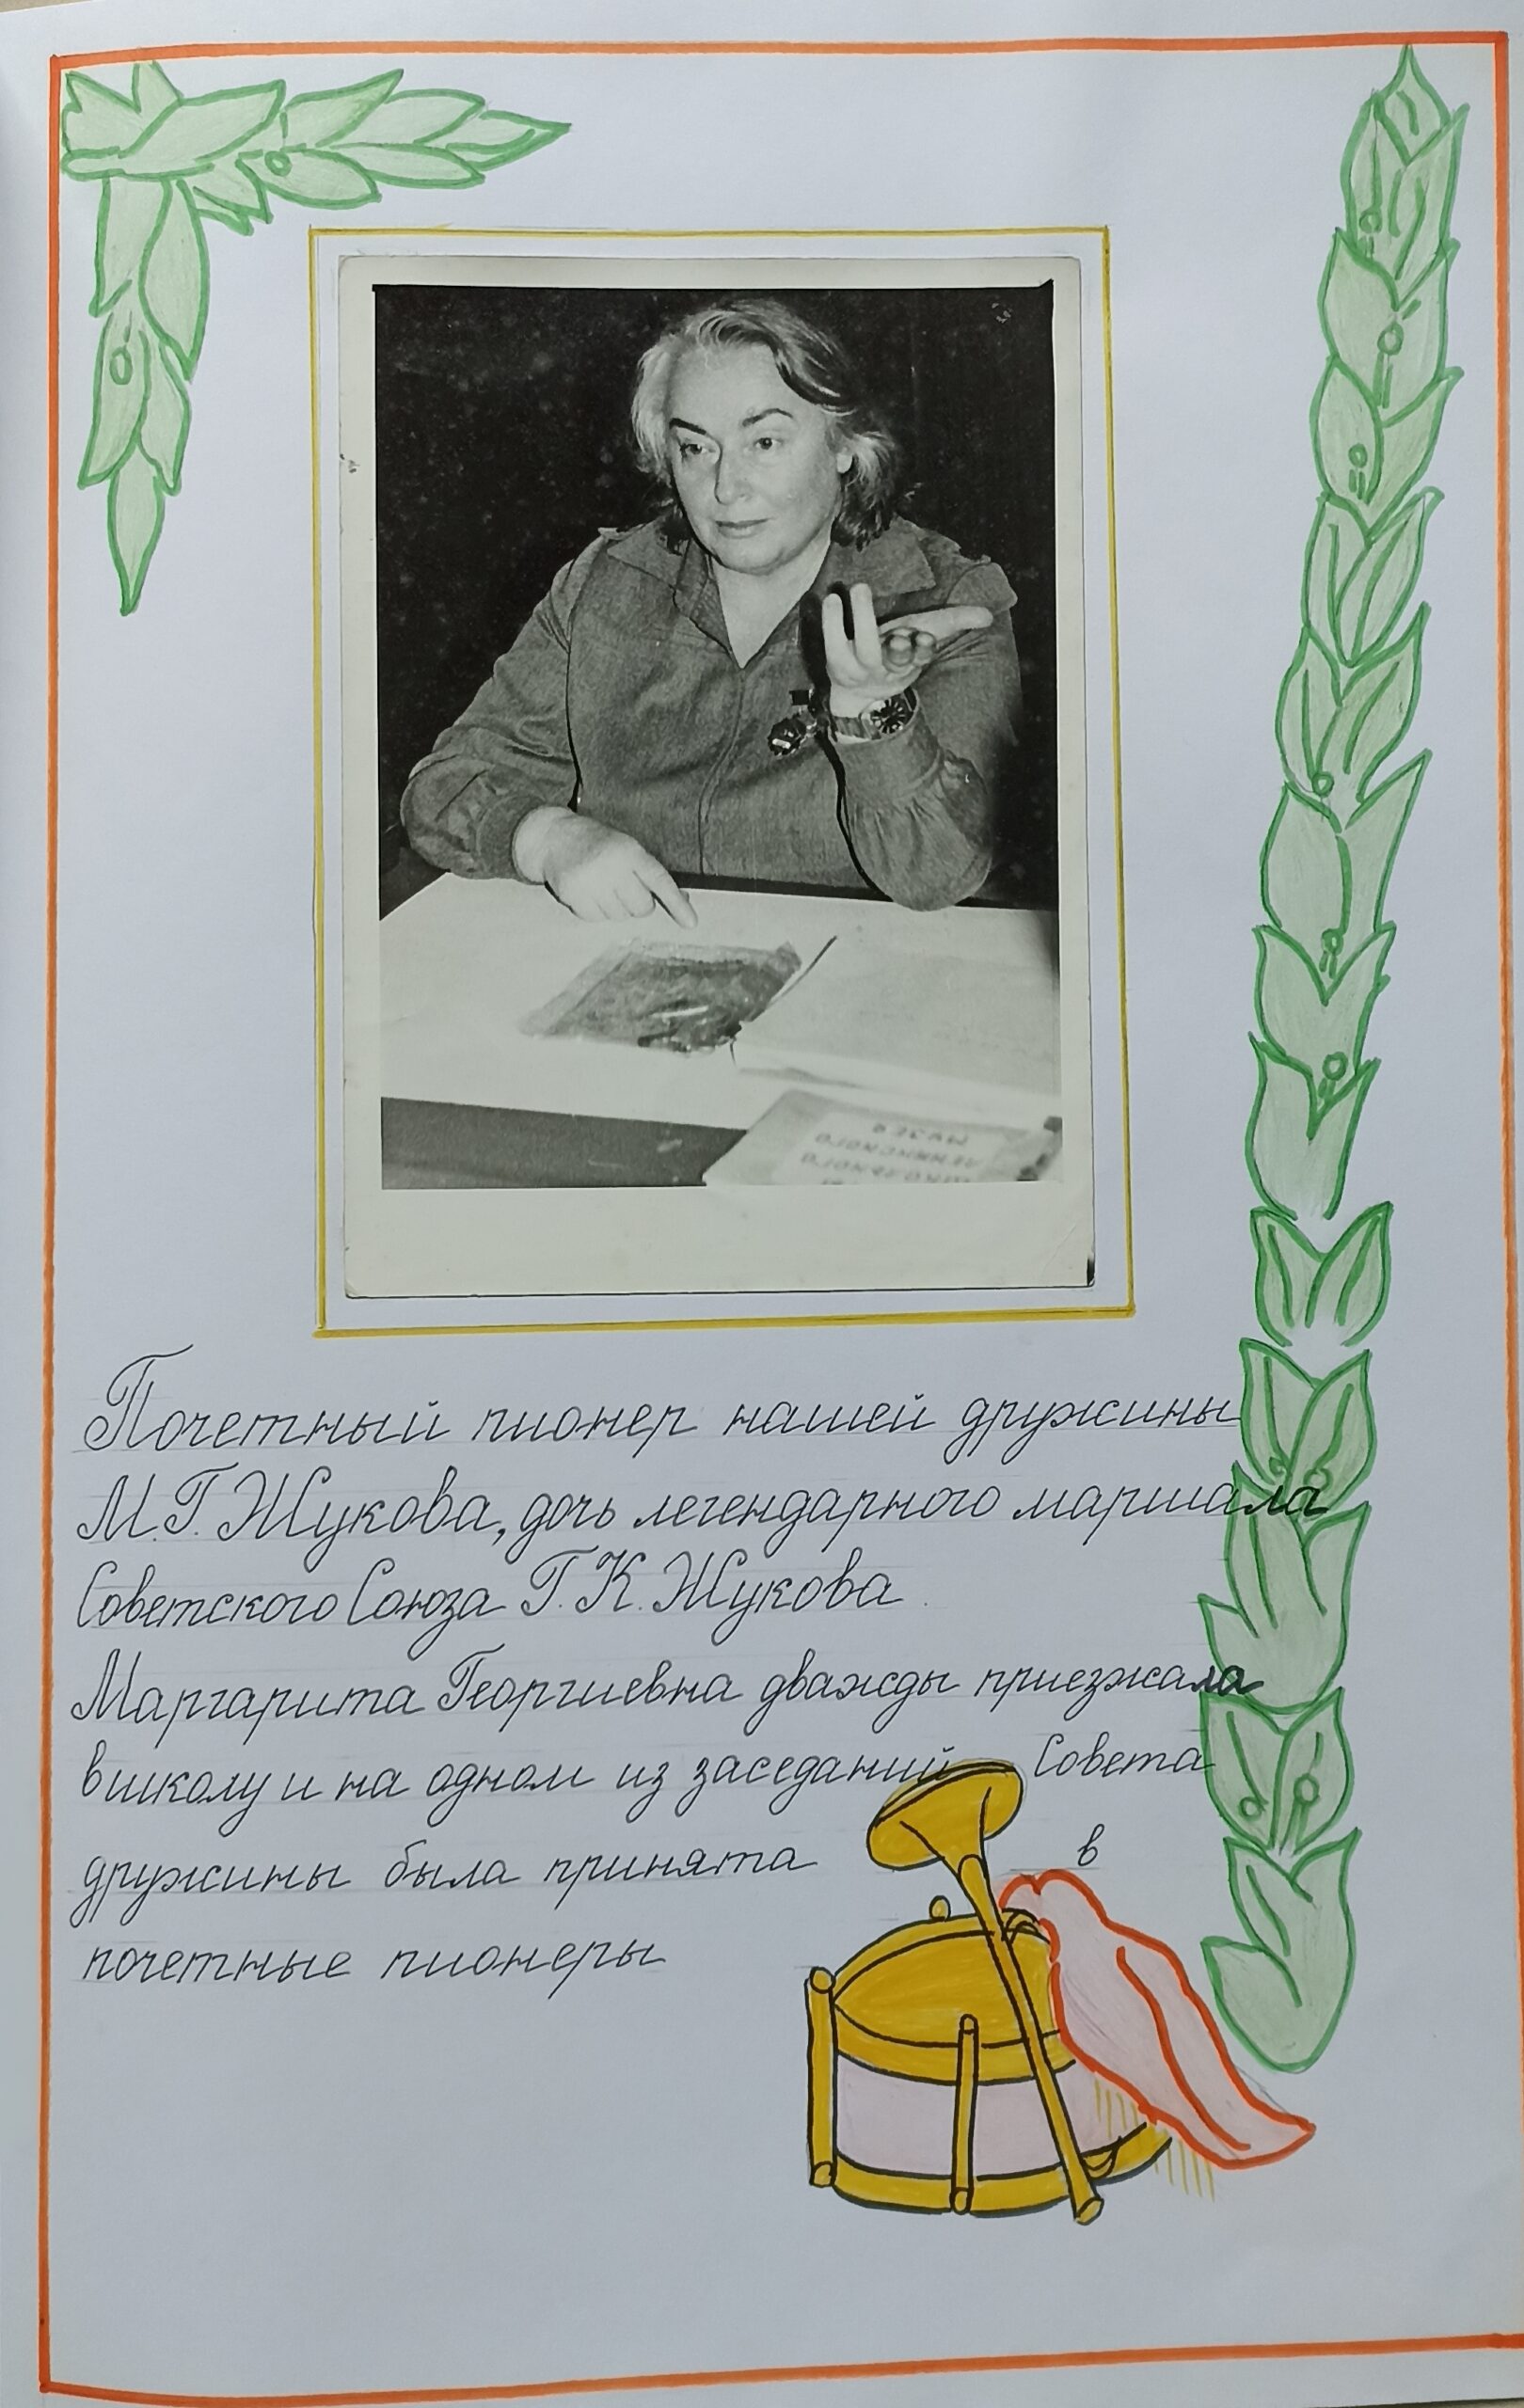 МУЗЕЯ
ЛЕНИНСКОГО
Почетный пионер нашей дружины
М.Г. Жукова, дочь легендарного маршала
Советского Союза Г.К. Жукова.
Маргарита Георгиевна дважды приезжала
в школу и на одном из заседаний Совета
дружины была принята в
почетные пионеры